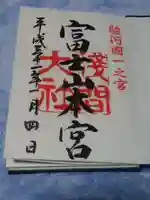 駿河國一之宮
富士山本宮
淺間
大社
平成 年一月四日